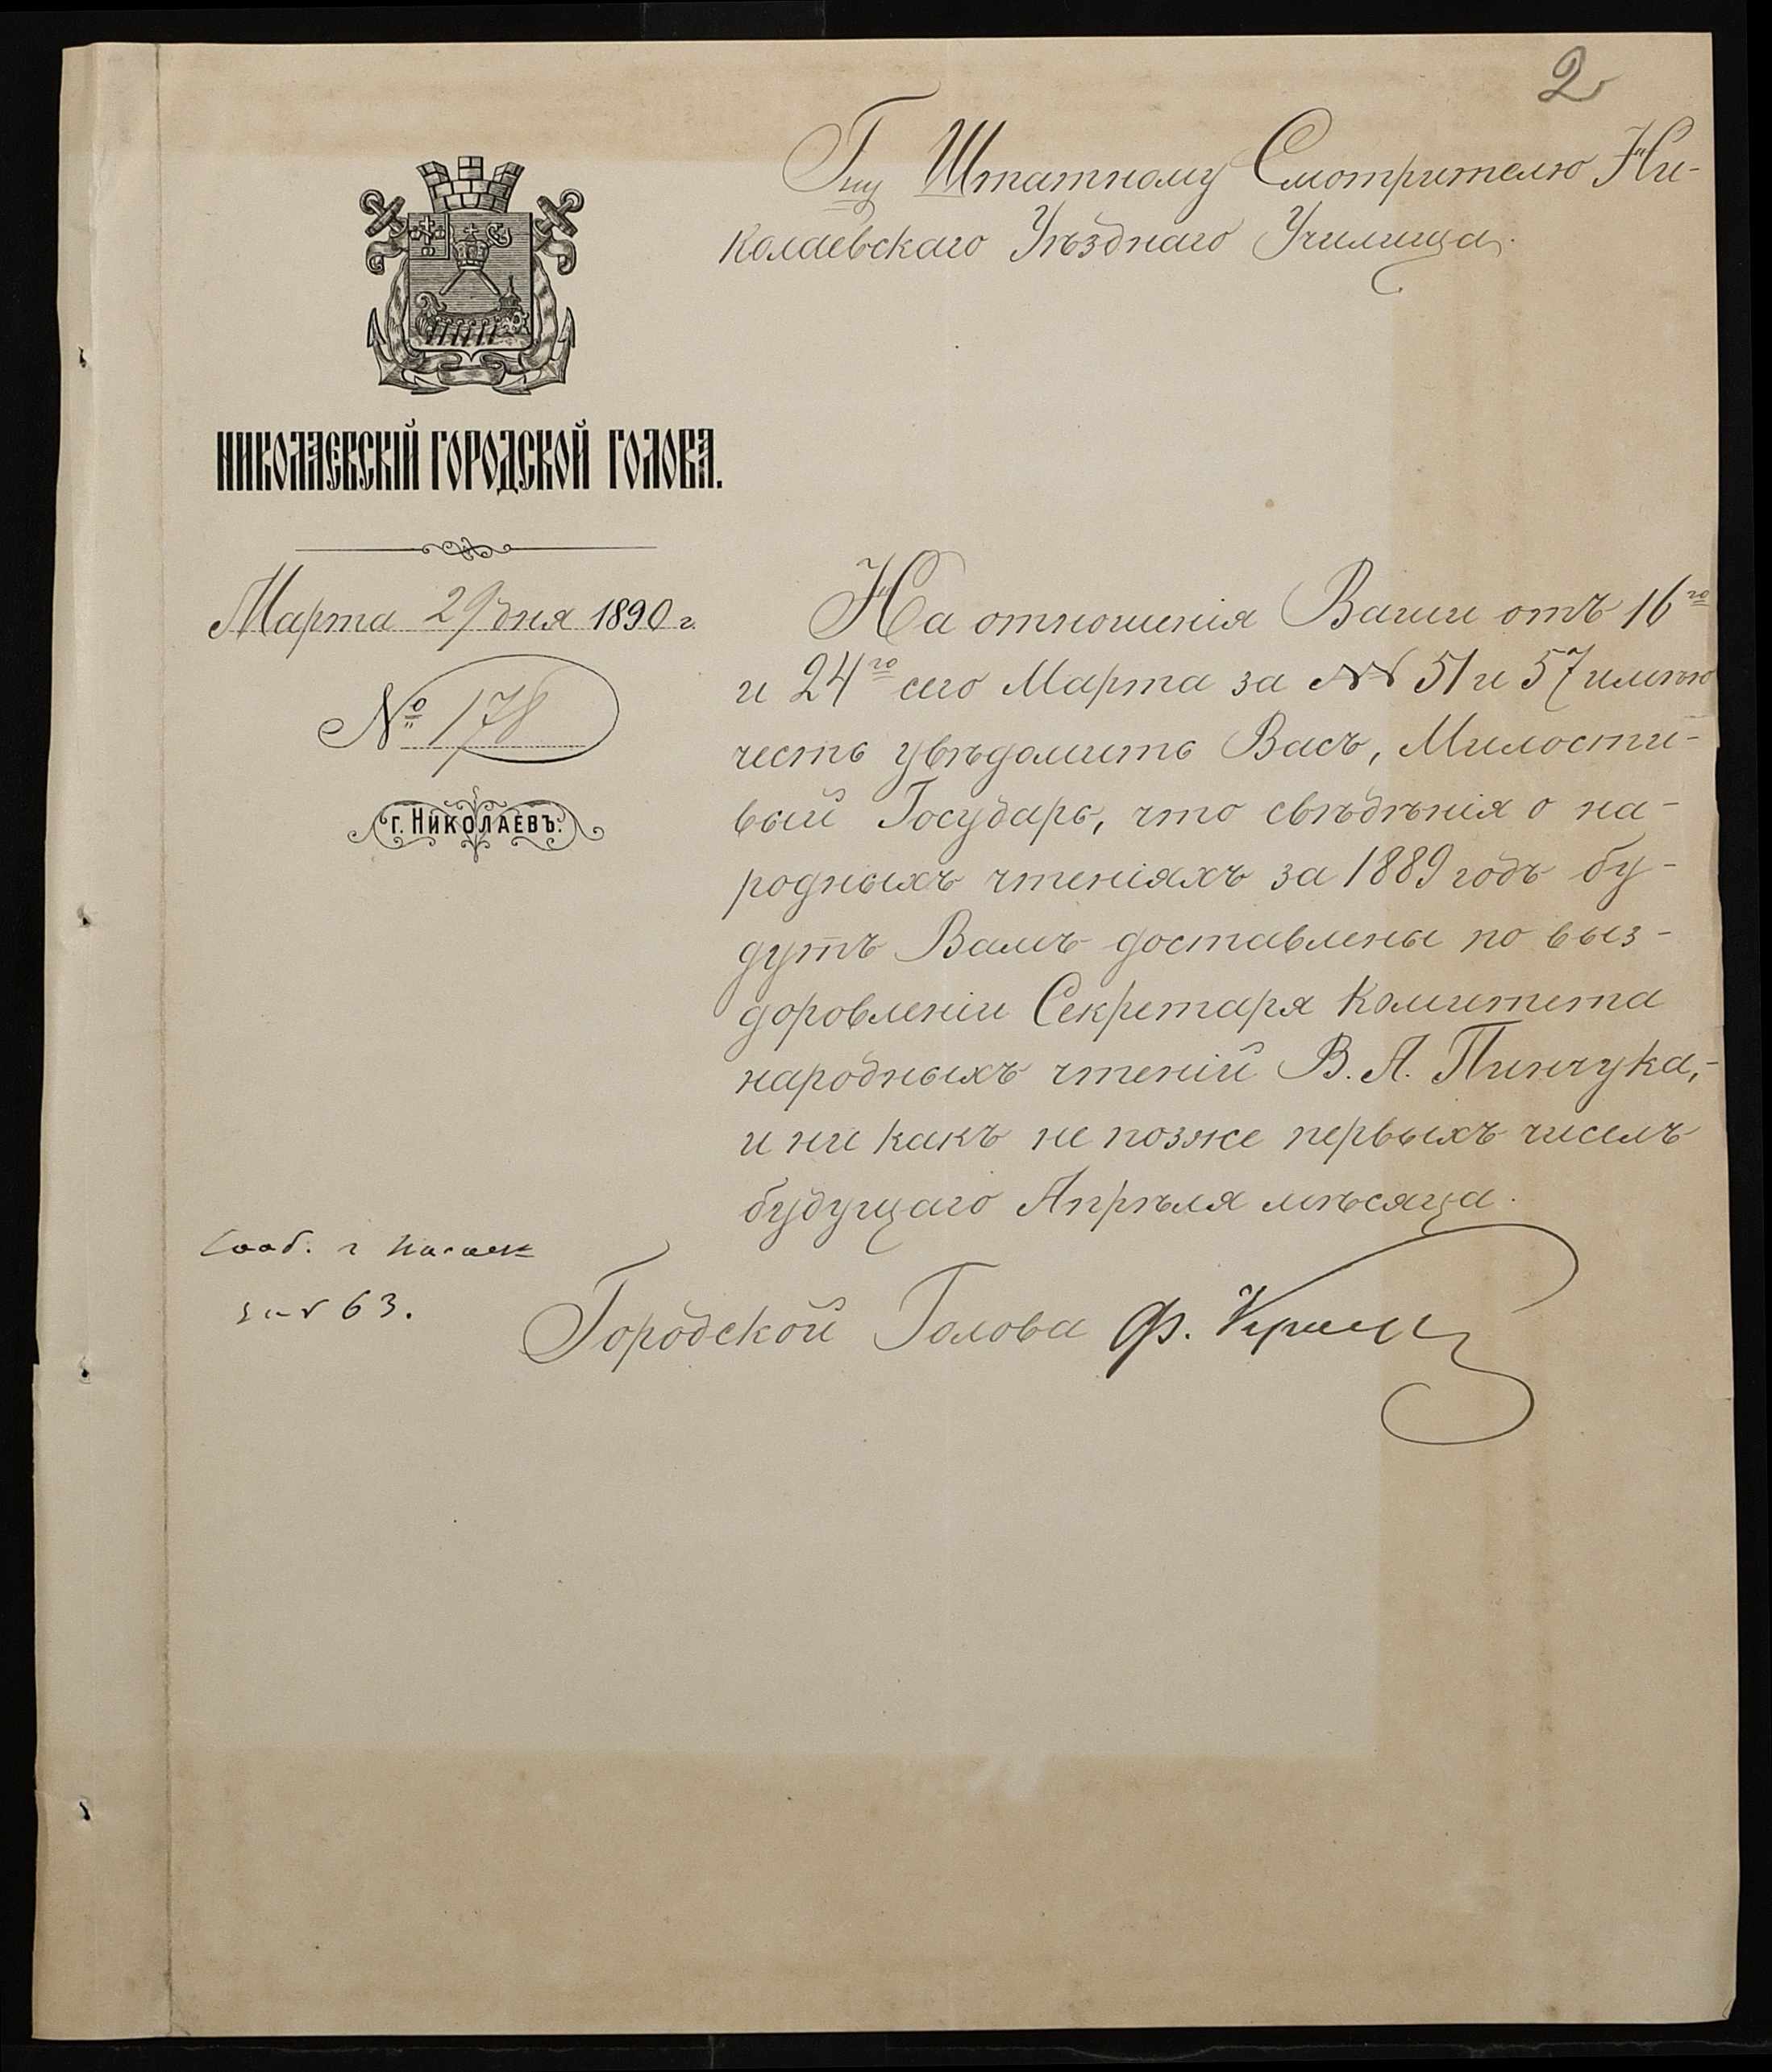 2
Гну Штатному Смотрителю Ни-
колаевскаго Уѣзднаго Училища.
НИКОЛАЕВСКІЙ ГОРОДСКОЙ ГОЛОВА.
Марта 29 дня 1890 г.
№ 178
г. НИКОЛАЕВЪ.
На отношенія Ваши отъ 16го
и 24го сего Марта за №№ 51 и 57 имѣю
честь увѣдомить Васъ, Милости-
вый Государь, что свѣдѣнія о на-
родныхъ чтеніяхъ за 1889 годъ бу-
дутъ Вамъ доставлены по выз-
доровленіи Секретаря Комитета
народныхъ чтеній В. А. Пинчука,-
и ни какъ не позже первыхъ чиселъ
будущаго Апрѣля мѣсяца.
Сооб. г
за № 63.
Городской Голова Ф.